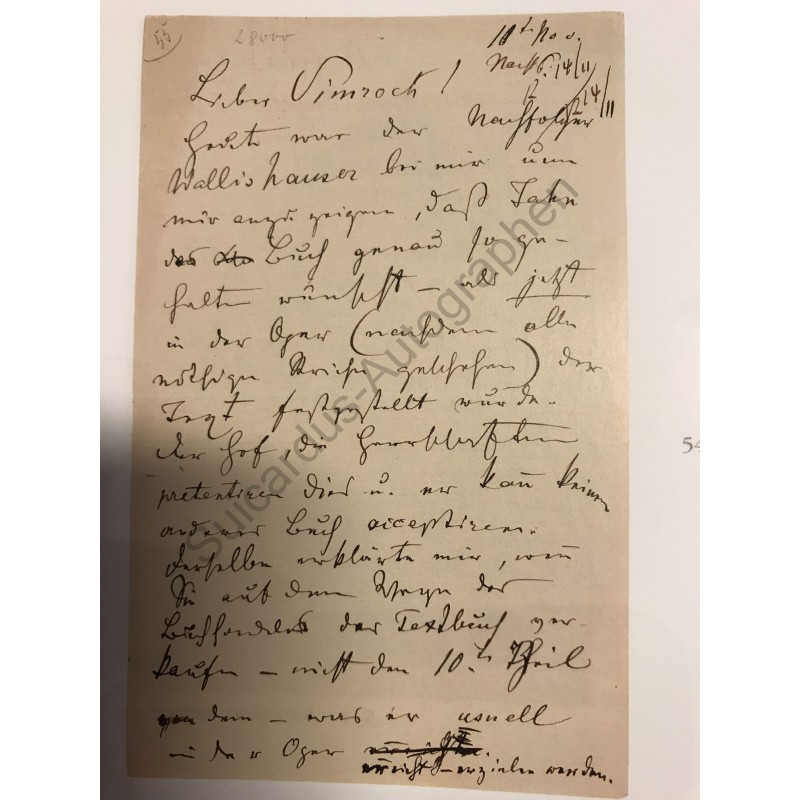 55
28000
11t. Nov.
Nachts. 14/11
14/11
Lieber Simrock!
Heute war der Nachfolger
Wallishauser bei mir um
mir anzuzeigen, daß Jahn
das Buch genau so ge-
halten wünscht – als jetzt
in der Oper (nachdem alle
nöthigen Striche geschehen) der
Text festgestellt wurde.
Der Hof, die Herrschaften
pretentiren dies u. er kann keinen
anderes Buch acceptiren.
Derselbe erklärte mir, wenn
Sie auf dem Wege des
Buchhandels das Textbuch ver-
kaufen – nicht den 10.ten Theil
von dem – was er
in der Oper
erzielen werden.
Suicardus-Autographen
54